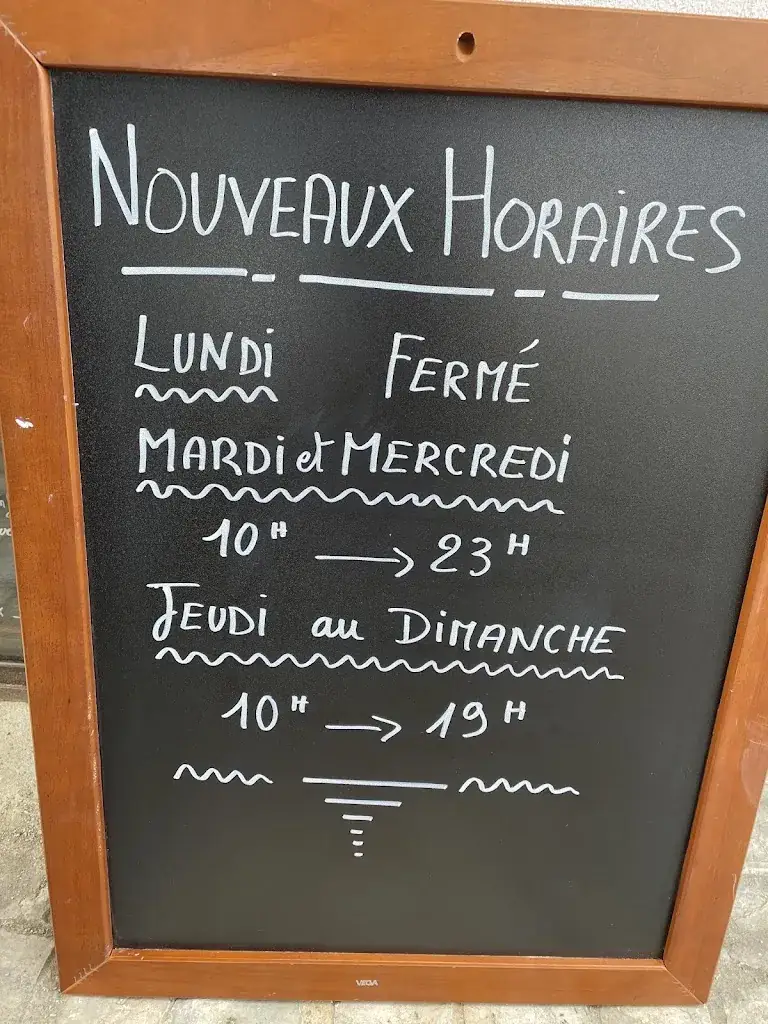 NOUVEAUX HORAIRES
LUNDi FERMÉ
MARDi et MERCREDi
10H → 23H
JEUDi au DiMANCHE
10H → 19H
VEGA